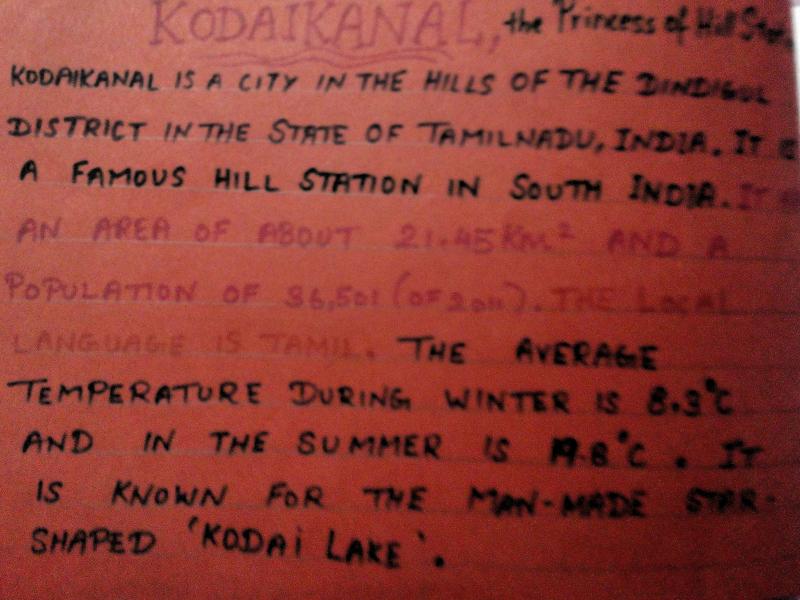 KODAIKANAL, the Princess of Hill
KODAIKANAL IS A CITY IN THE HILLS OF THE DINDIGUL
DISTRICT IN THE STATE OF TAMILNADU, INDIA. IT
A FAMOUS HILL STATION IN SOUTH INDIA. IT
AN AREA OF ABOUT 21.45 KM² AND A
POPULATION OF 36,501 (OF 2011). THE LOCAL
LANGUAGE IS TAMIL. THE AVERAGE
TEMPERATURE DURING WINTER IS 8.3°C
AND IN THE SUMMER IS 19.8°C. IT
IS KNOWN FOR THE MAN-MADE STAR-
SHAPED 'KODAI LAKE'.